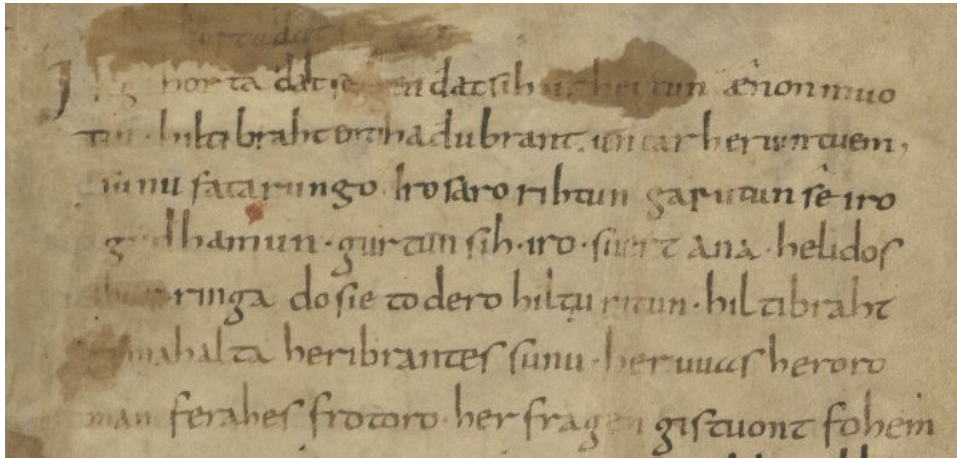 Ik gihorta dat seggen dat sih urhettun ænon muo
tin · hiltibraht enti hadubrant · untar heriun tuem,
sunu fatarungo · iro saro rihtun garutun sê iro
gudhamun · gurtun sih · iro · suert ana · helidos
ubar ringa do sie to dero hiltu ritun · hiltibraht
gimahalta heribrantes sunu · her uuas heroro
man ferahes frotoro · her fragen gistuont fohem